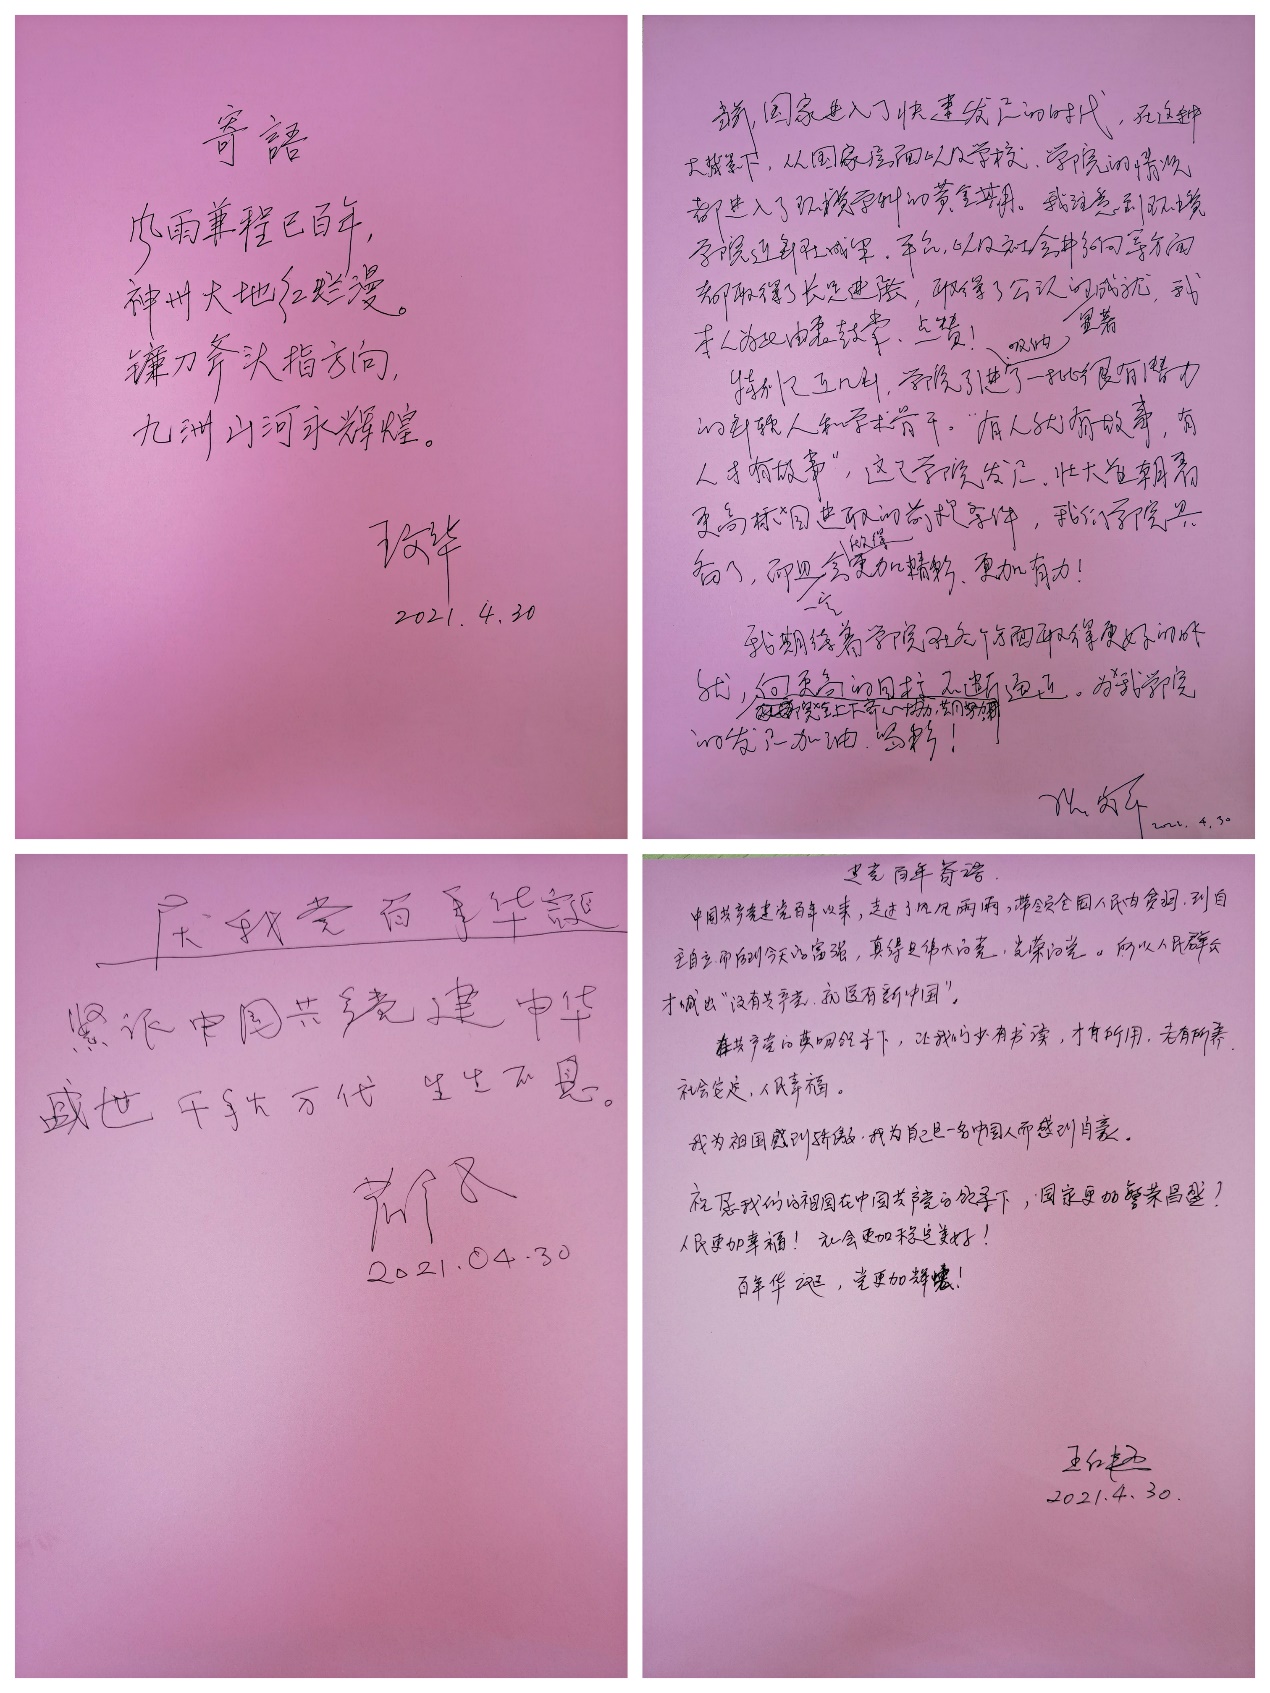 寄語
风雨兼程已百年，
神州大地红烂漫。
镰刀斧头指方向，
九洲山河永辉煌。
王文华
2021.4.30
当前，国家进入了快速发展的时代，在这种
大背景下，从国家层面以及学校、学院的情况
都进入了环境学科的黄金期。我注意到环境
学院近年在成果、平台，以及社会等方面
都取得了长足进展，取得了公认的成就，我
显著
本人为此由衷鼓掌、点赞！
吸纳
特别是近几年，学院引进了一批很有潜力
的年轻人和学术骨干。“有人就有故事，有
人才有故事”，这是学院发展、壮大并朝着
更高标目进取的前提条件，我们学院具
做得
备了，而且会更加精彩、更加有力！
一定
我期待着学院在各个方面取得更好的成
就，向更高的目标不断逼近。为我学院
院全上下齐心协力，共同努力
的发展加油、喝彩！
2021.4.30
庆我党百年华誕
紧跟中国共产党建中华
盛世 千秋万代 生生不息。
2021.04.30
建党百年寄语.
中国共产党建党百年以来，走过了风风雨雨，带领全国人民由贫穷，到自
主自立而后到今天的富强，真得是伟大的党，光荣的党。所以人民群众
才喊出“没有共产党，就没有新中国”。
在共产党的英明领导下，让我们少有书读，才有所用，老有所养
社会安定，人民幸福。
我为祖国感到骄傲，我为自己是一名中国人而感到自豪。
祝愿我们的祖国在中国共产党的领导下，国家更加繁荣昌盛！
人民更加幸福！社会更加稳定美好！
百年华诞，党更加辉煌！
王红
2021.4.30.